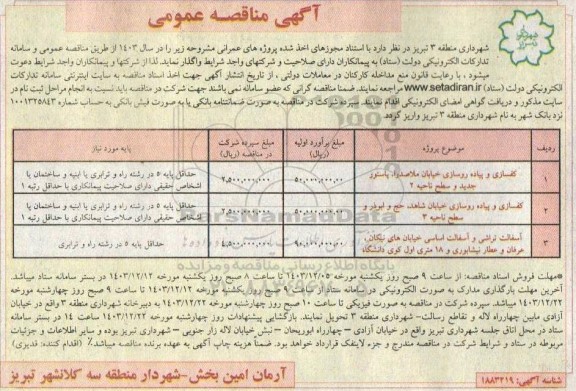 آگهی مناقصه عمومی
شهرداری منطقه ۳ تبریز در نظر دارد با استناد مجوزهای اخذ شده پروژه های عمرانی مشروحه زیر را در سال ۱۴۰۳ از طریق مناقصه عمومی و سامانه
تدارکات الکترونیکی دولت (ستاد) به پیمانکاران دارای صلاحیت و شرکتهای واجد شرایط واگذار نماید. لذا از شرکتها و پیمانکاران واجد شرایط دعوت
میشود ، با رعایت قانون منع مداخله کارکنان در معاملات دولتی ، از تاریخ انتشار آگهی جهت اخذ اسناد مناقصه به سایت اینترنتی سامانه تدارکات
الکترونیکی دولت (ستاد) www.setadiran.ir مراجعه نمایند. ضمنا مناقصه گرانی که عضو سامانه نمی باشند جهت شرکت در مناقصه باید نسبت به انجام مراحل ثبت نام در
سایت مذکور و دریافت گواهی امضای الکترونیکی اقدام نمایند. سپرده شرکت در مناقصه به صورت ضمانتنامه بانکی یا به صورت فیش بانکی به حساب شماره ۱۰۰۱۳۲۵۸۴۳
نزد بانک شهر به نام شهرداری منطقه ۳ تبریز واریز گردد.
ردیف موضوع پروژه مبلغ برآورد اولیه (ریال) مبلغ سپرده شرکت در مناقصه (ریال) پایه مورد نیاز
۱ کفسازی و پیاده روسازی خیابان ملاصدرا، پاستور جدید و سطح ناحیه ۲ ۵۰,۰۰۰,۰۰۰,۰۰۰ ۲,۵۰۰,۰۰۰,۰۰۰ حداقل پایه ۵ در رشته راه و ترابری یا ابنیه و ساختمان یا اشخاص حقیقی دارای صلاحیت پیمانکاری با حداقل رتبه ۱
۲ کفسازی و پیاده روسازی خیابان شاهد، حج و ابوذر و سطح ناحیه ۳ ۵۰,۰۰۰,۰۰۰,۰۰۰ ۲,۵۰۰,۰۰۰,۰۰۰ حداقل پایه ۵ در رشته راه و ترابری یا ابنیه و ساختمان یا اشخاص حقیقی دارای صلاحیت پیمانکاری با حداقل رتبه ۱
۳ آسفالت تراشی و آسفالت اساسی خیابان های نیکان، عرفان و عطار نیشابوری و ۱۸ متری اول کوی دانشگاه ۹۰,۰۰۰,۰۰۰,۰۰۰ ۴,۵۰۰,۰۰۰,۰۰۰ حداقل پایه ۵ در رشته راه و ترابری
ParsNamadData
پایگاه اطلاع رسانی مناقصه و مزایده
*مهلت فروش اسناد مناقصه: از ساعت ۹ صبح روز یکشنبه مورخه ۱۴۰۳/۱۲/۰۵ تا ساعت ۸ صبح روز یکشنبه مورخه ۱۴۰۳/۱۲/۱۲ در بستر سامانه ستاد میباشد.
آخرین مهلت بارگذاری مدارک به صورت الکترونیکی در سامانه ستاد از ساعت ۸ صبح روز یکشنبه مورخه ۱۴۰۳/۱۲/۱۲ تا ساعت ۹ صبح روز چهارشنبه مورخه
۱۴۰۳/۱۲/۲۲ میباشد. سپرده شرکت در مناقصه به صورت فیزیکی تا ساعت ۱۰ صبح روز چهارشنبه مورخه ۱۴۰۳/۱۲/۲۲ به دبیرخانه شهرداری منطقه ۳ واقع در خیابان
آزادی مابین چهارراه لاله و تقاطع رسالت- شهرداری منطقه ۳ تحویل نمایند. بازگشایی پیشنهادات روز چهارشنبه مورخه ۱۴۰۳/۱۲/۲۲ راس ساعت ۱۴ در بستر سامانه
ستاد در محل اتاق جلسه شهرداری تبریز واقع در خیابان آزادی – چهارراه ابوریحان – نبش خیابان لاله زار جنوبی – شهرداری تبریز بوده و سایر اطلاعات و جزئیات
مربوطه در ستاد و شرایط شرکت در مناقصه مندرج و جزء لاینفک قرارداد خواهد بود. ضمناً هزینه چاپ آگهی به عهده برنده مناقصه میباشد٪ (اقدام کننده: قدیری)
آرمان امین بخش-شهردار منطقه سه کلانشهر تبریز
شناسه آگهی: ۱۸۸۳۲۱۹